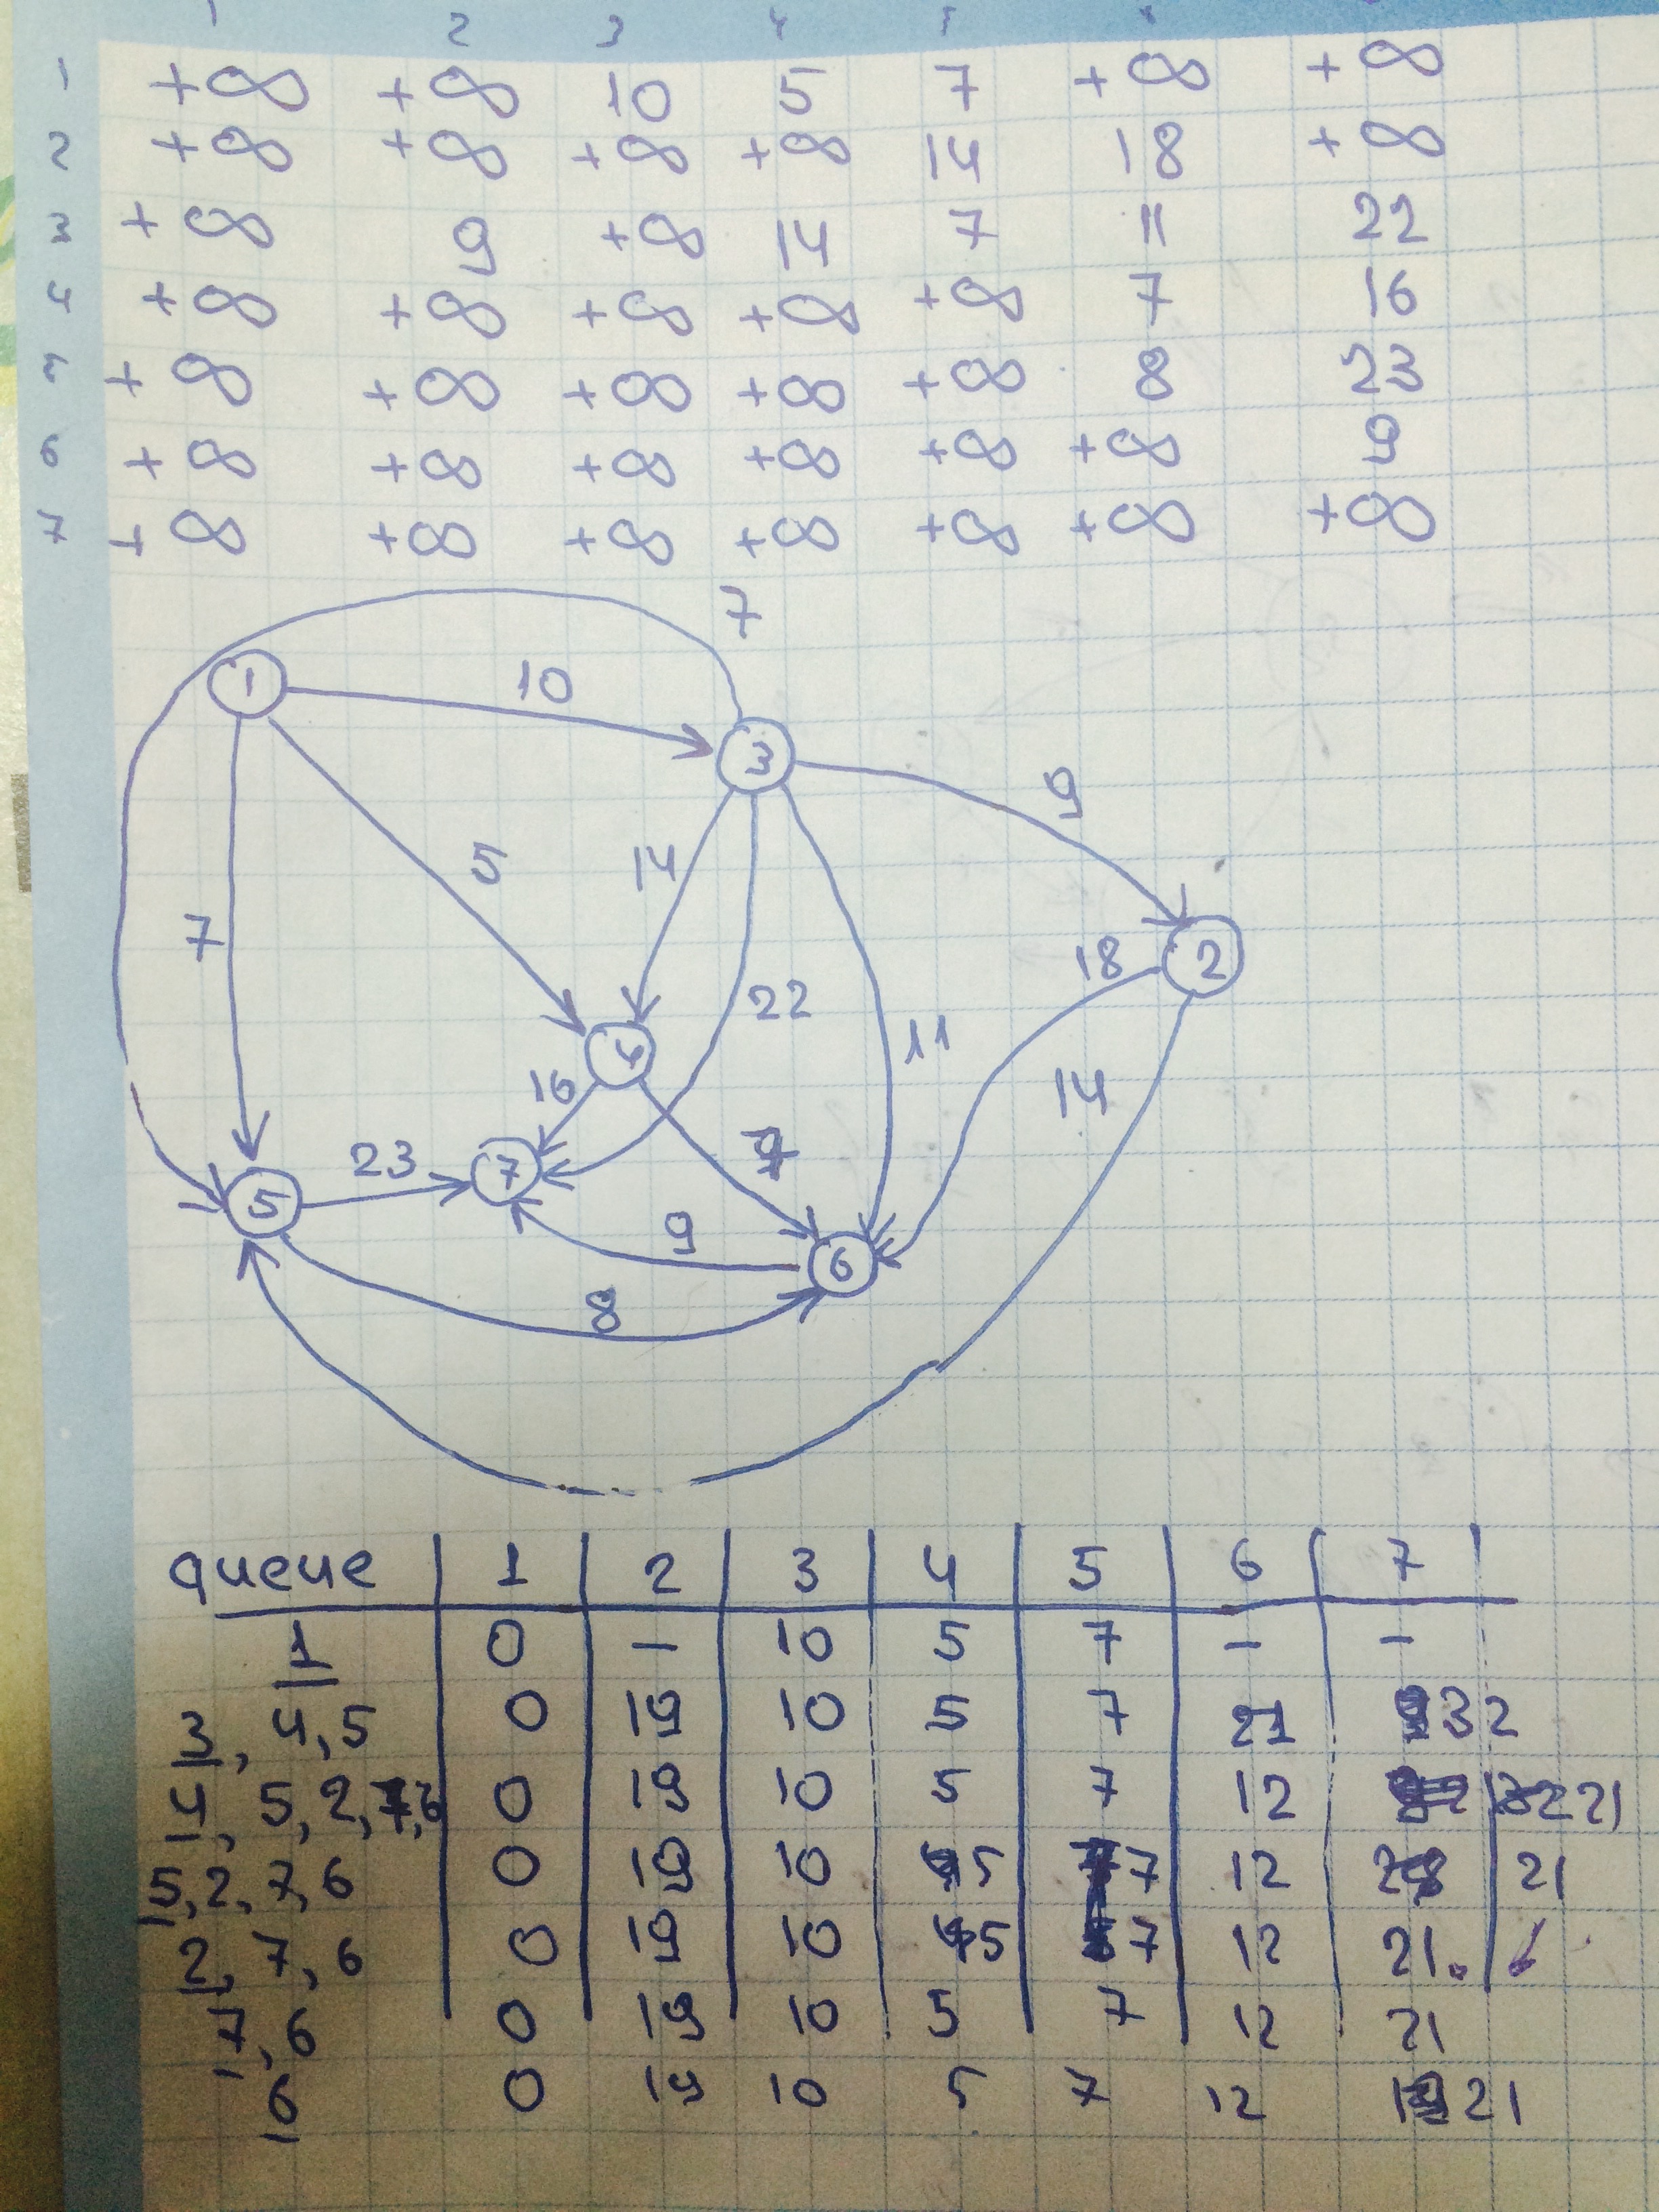 1 2 3 4 5
1 +∞ +∞ 10 5 7 +∞ +∞
2 +∞ +∞ +∞ +∞ 14 18 +∞
3 +∞ 9 +∞ 14 7 11 22
4 +∞ +∞ +∞ +∞ +∞ 7 16
+∞ +∞ +∞ +∞ +∞ 8 23
6 +∞ +∞ +∞ +∞ +∞ +∞ 9
7 +∞ +∞ +∞ +∞ +∞ +∞ +∞
7
1 10
3
9
5 14
7
18 2
22
11
4
16 14
7
23 7
5
9
6
8
queue 1 2 3 4 5 6 7
1 0 - 10 5 7 - -
3, 4, 5 0 19 10 5 7 21 32
4, 5, 2, 7, 6 0 19 10 5 7 12 21
5, 2, 7, 6 0 19 10 5 7 12 21
2, 7, 6 0 19 10 5 7 12 21
7, 6 0 19 10 5 7 12 21
6 0 19 10 5 7 12 21